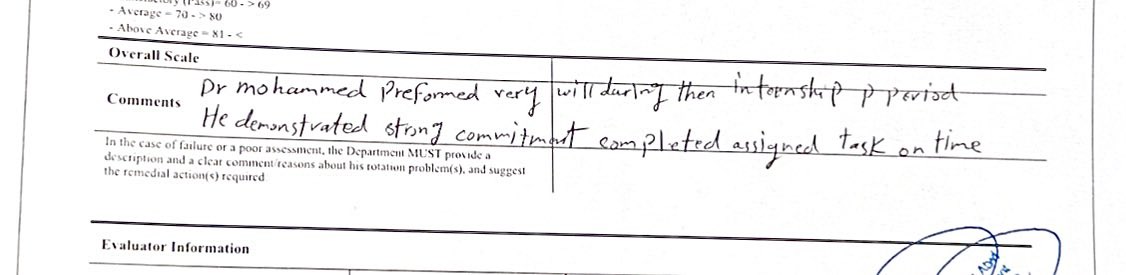 (Pass)= 60 - > 69
- Average = 70 - > 80
- Above Average = 81 - <
Overall Scale
Comments
Dr mohammed Preformed very will during then internship p period
He demonstrated strong commitment completed assigned task on time
In the case of failure or a poor assessment, the Department MUST provide a
description and a clear comment/reasons about his rotation problem(s), and suggest
the remedial action(s) required
Evaluator Information